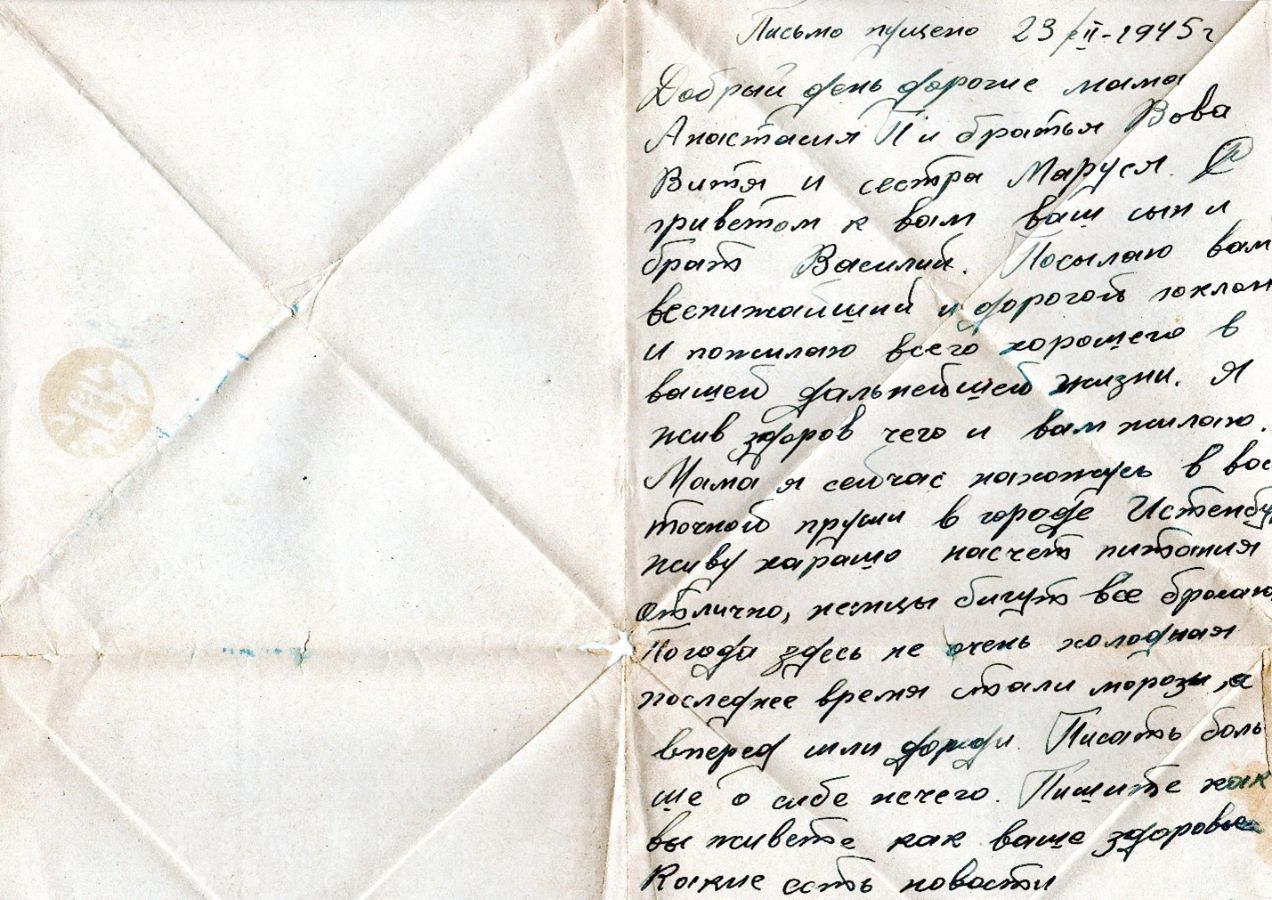 Письмо пущено 23/II-1945г
Добрый день дорогие мама
Анастасия П и братья Вова
Витя и сестра Маруся. С
приветом к вам ваш сын и
брат Василий. Посылаю вам
всенижайший и дорогой поклон
и пожилаю всего хорошего в
вашей дальнейшей жизни. Я
жив здоров чего и вам жилаю.
Мама я сейчас нахожусь в вос
точной пруси в городе Истенбу
живу харашо насчет питания
отлично, немцы бигут все бросаю
Погода здесь не очень холодная
последнее время стали морозы, а
вперед шли дожди. Писать боль
ше о сибе нечего. Пишите как
вы живете как ваше здоровье
Какие есть новости